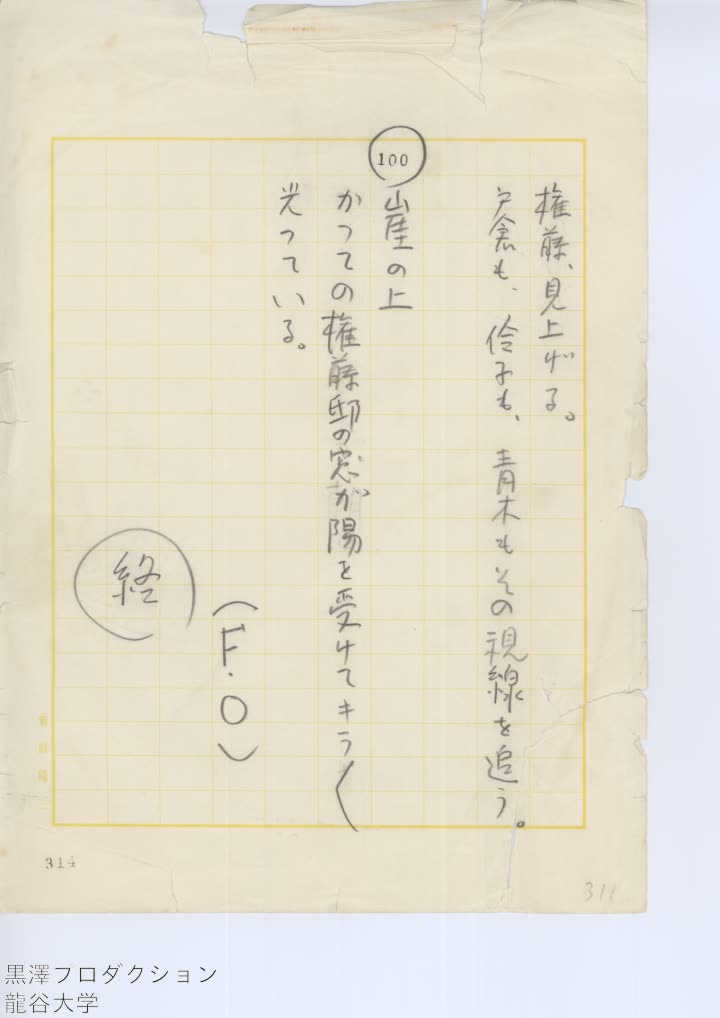 権藤、見上げる。
戸倉も、伶子も、青木もその視線を追う。
100
崖の上
かつての権藤邸の窓が陽を受けてキラ〱
光っている。
(F.O)
終
314
311
黒澤プロダクション
龍谷大学